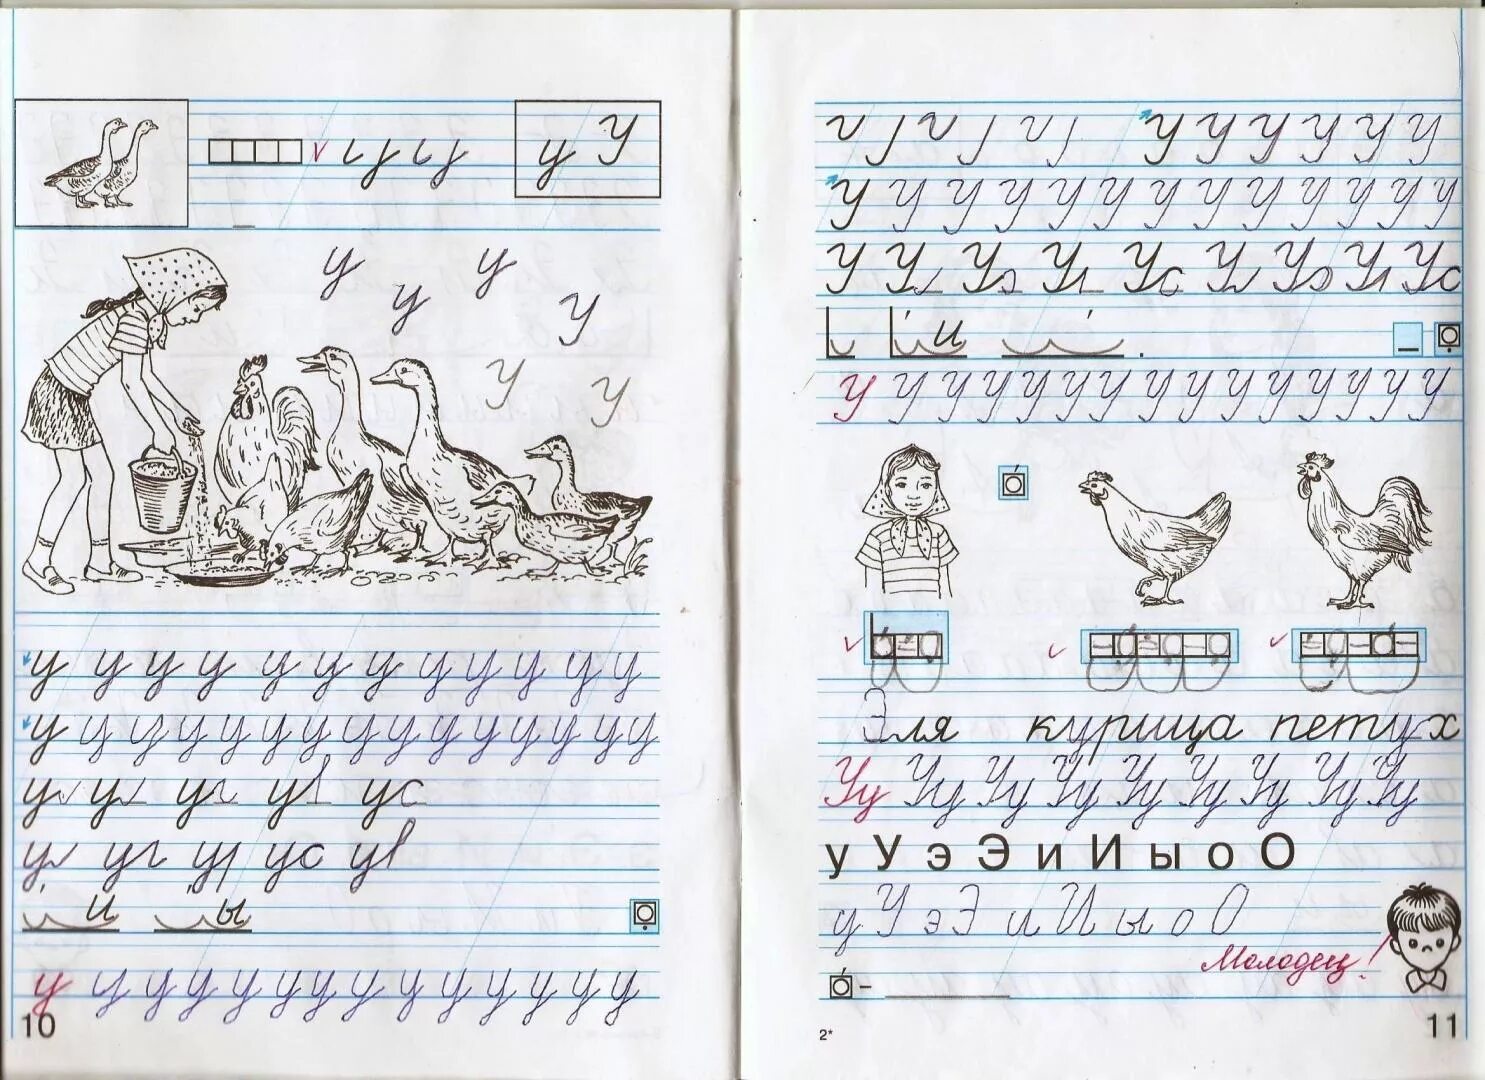 у У
у у
у У
У У
у у у у у у у у у у у у
у у у у у у у у у у у у у у у
у у уг ув ус
ул уг ур ус ув
и ы
у у у у у у у у у у у у у
10
У У У У У У
У У У У У У У У У У У У У
У Ул Уз Ул Ус Ул Уз Ул Ус
и
У У У У У У У У У У У У У У У
Эля курица петух
Уу Уу Уу Уу Уу Уу Уу Уу Уу
у У э Э и И ы о О
у У э Э и И ы о О
Молодец!
2*
11